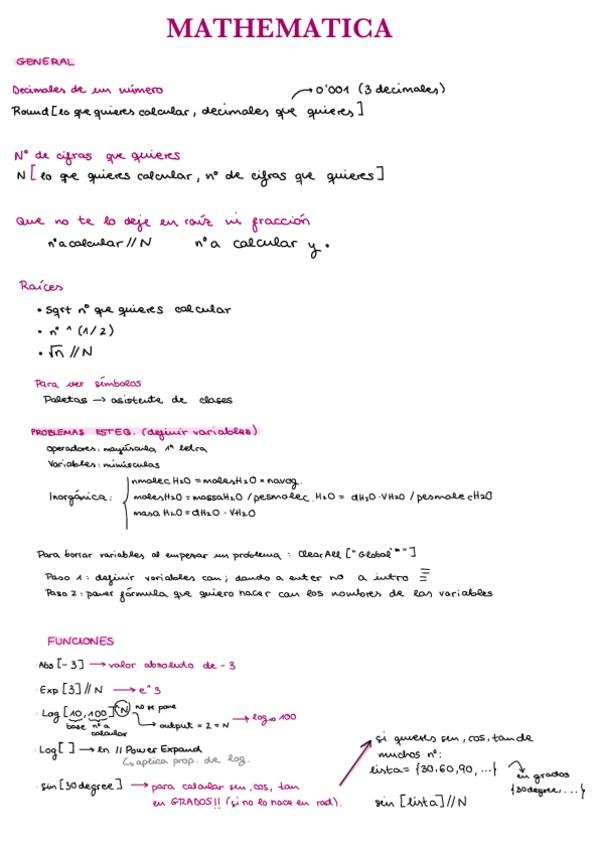 MATHEMATICA
GENERAL
Decimales de un número
→ 0'001 (3 decimales)
Round [lo que quieres calcular, decimales que quieres]
Nº de cifras que quieres
N [lo que quieres calcular, nº de cifras que quieres]
Que no te lo deje en raíz ni fracción
nº a calcular // N nº a calcular y .
Raíces
• Sqrt nº que quieres calcular
• nº ^ (1/2)
• √n // N
Para ver símbolos
Paletas → asistente de clases
PROBLEMAS ESTEQ. (definir variables)
Operadores: mayúscula 1ª letra
Variables: minúsculas
nmolec H2O = molesH2O * navog.
Inorgánica: molesH2O = massaH2O / pesmolec H2O = dH2O · VH2O / pesmolecH2O
masa H2O = dH2O · VH2O
Para borrar variables al empezar un problema : ClearAll ["Global`*"]
Paso 1 : definir variables con ; dando a enter no a intro
Paso 2 : poner fórmula que quiero hacer con los nombres de las variables
FUNCIONES
· Abs [-3] → valor absoluto de -3
· Exp [3] // N → e^3
· Log [10, 100] N no se pone
base nº a calcular
→ output = 2 = N → log10 100
· Log [ ] → ln // Power Expand
aplica prop. de log.
· sin [30 degree] → para calcular sen, cos, tan
en GRADOS!! (si no lo hace en rad).
si quieres sen, cos, tan de
muchos nº:
lista = {30, 60, 90, ...}
en grados
{30degree, ...}
sin [lista] // N